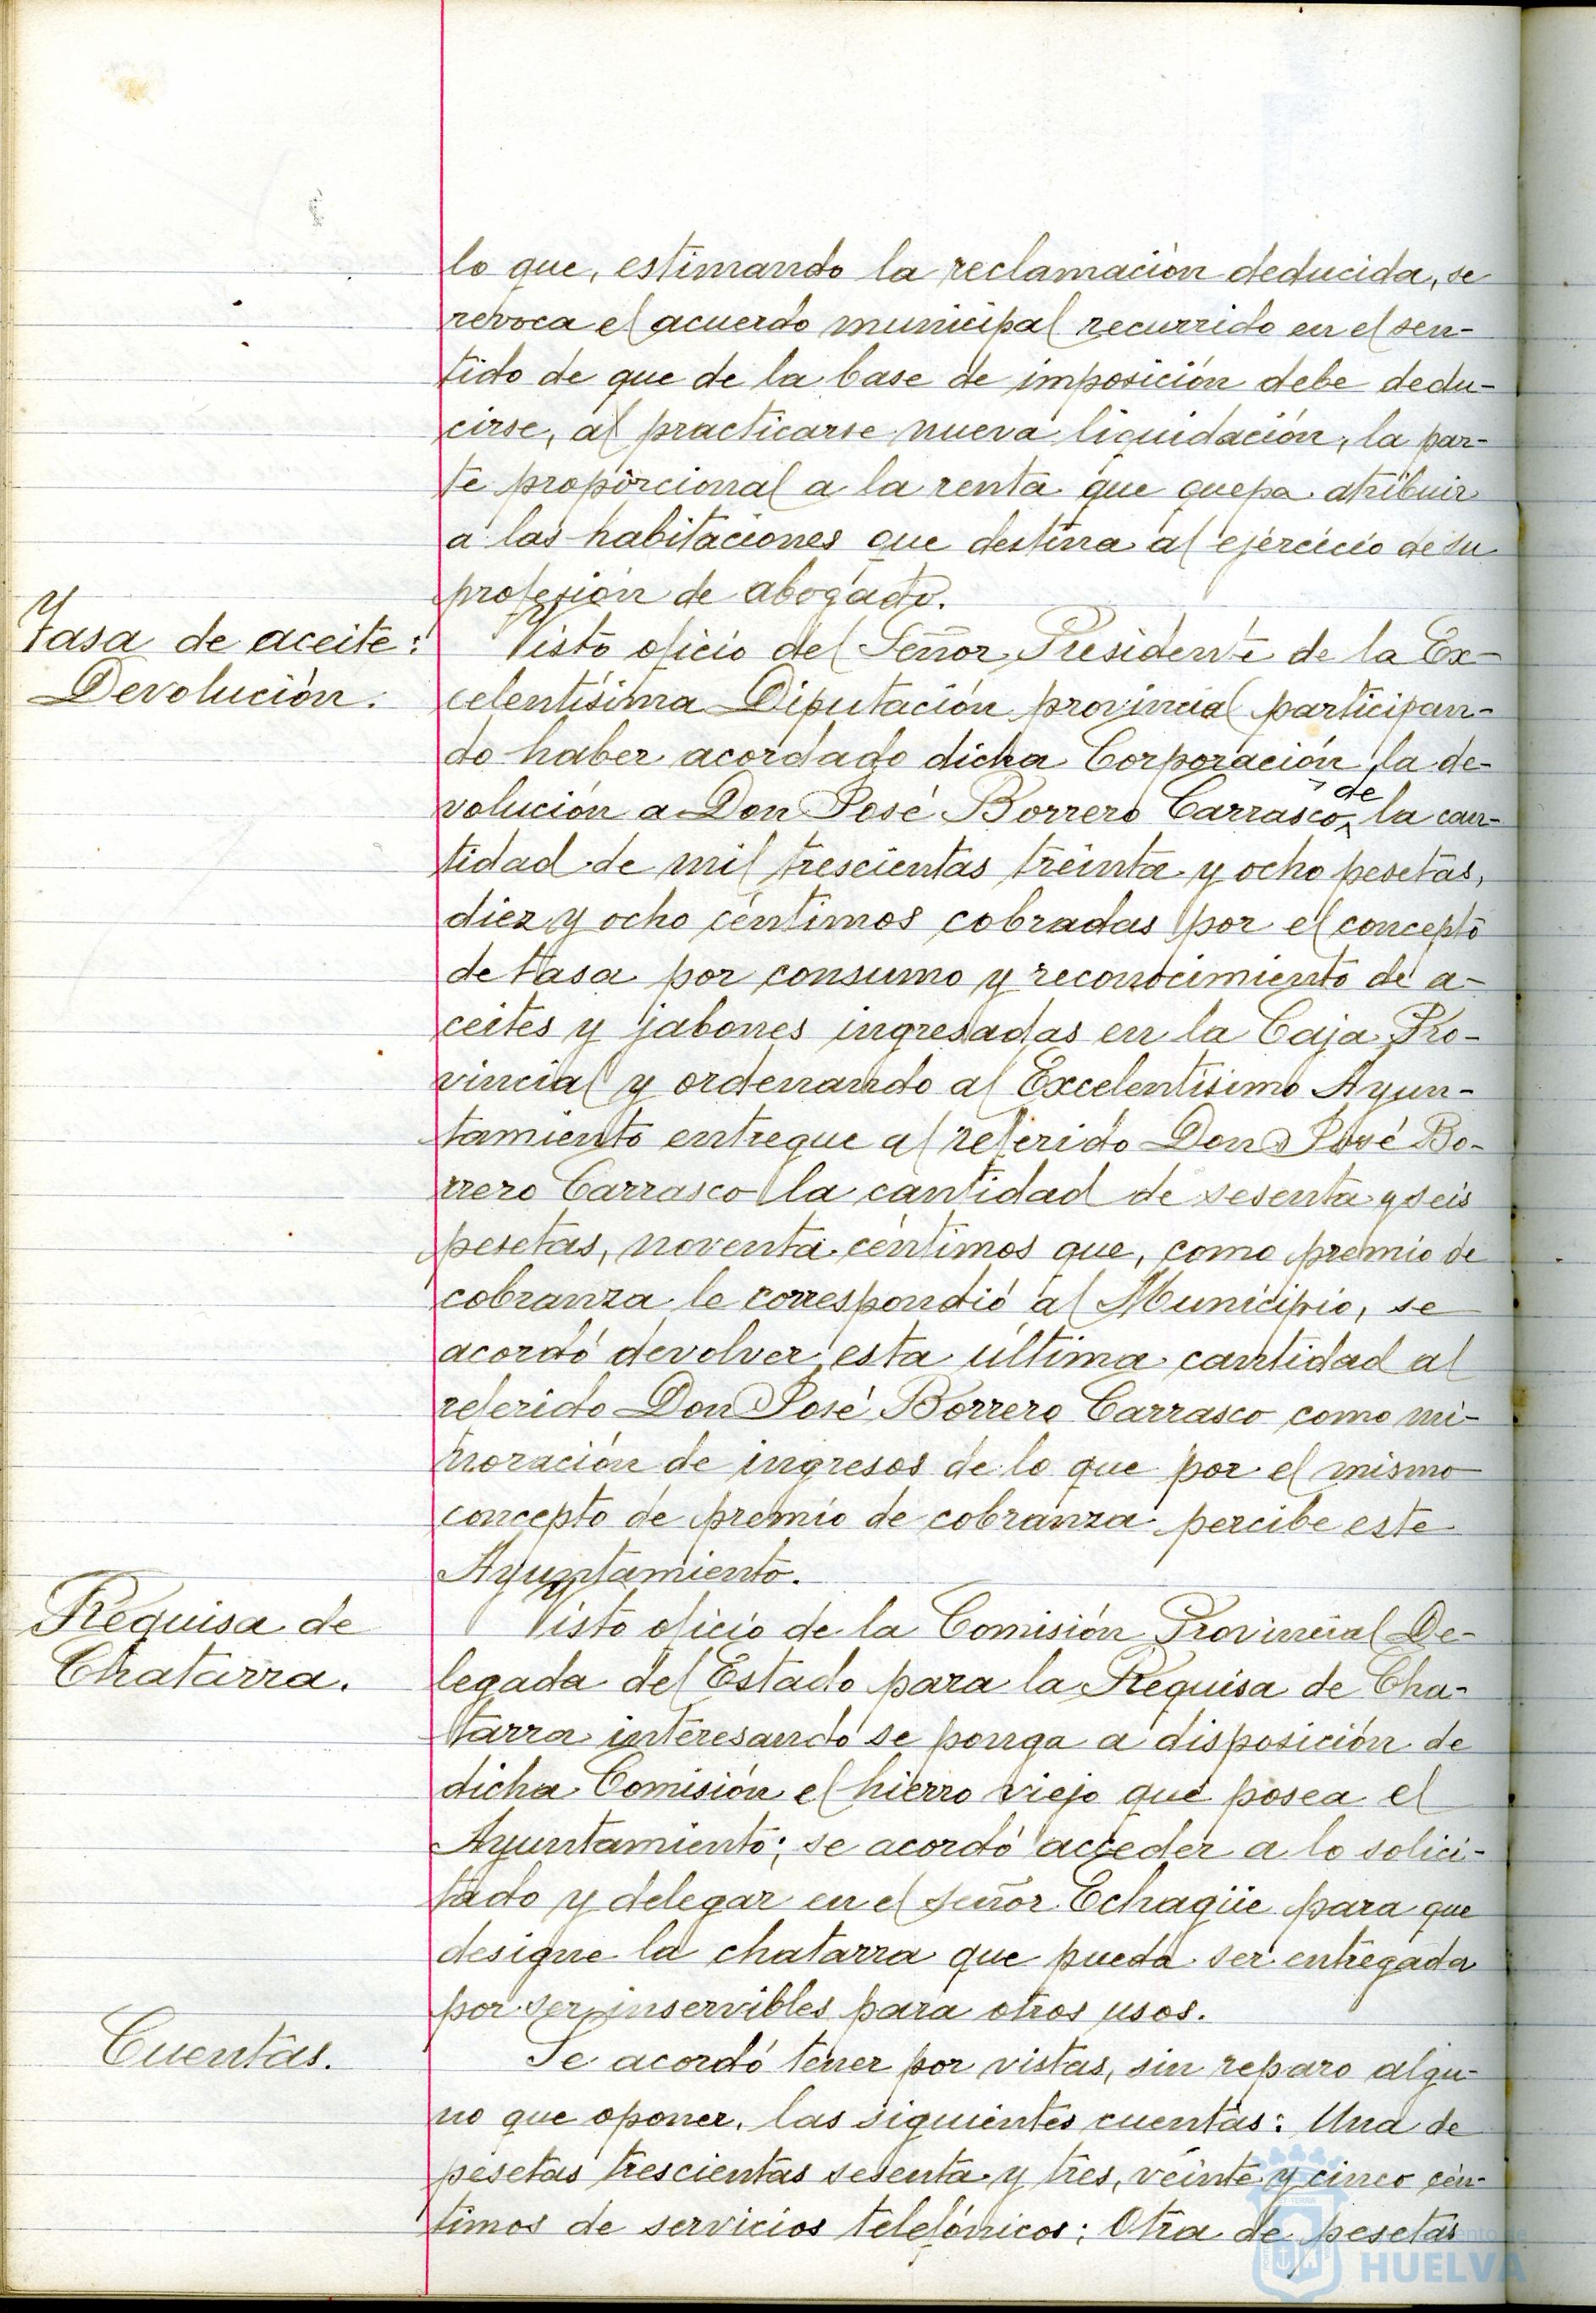 lo que, estimando la reclamación deducida, se
revoca el acuerdo municipal recurrido en el sen-
tido de que de la base de imposición debe dedu-
cirse, al practicarse nueva liquidación, la par-
te proporcional a la renta que quepa atribuir
a las habitaciones que destina al ejercicio de su
profesión de abogado.
Tasa de aceite:
Devolución.
Visto oficio del Señor Presidente de la Ex-
celentísima Diputación provincial participan-
do haber acordado dicha Corporación la de-
volución a Don José Borrero Carrasco de la can-
tidad de mil trescientas treinta y ocho pesetas,
diez y ocho céntimos cobradas por el concepto
de tasa por consumo y reconocimiento de a-
ceites y jabones ingresadas en la Caja Pro-
vincial y ordenando al Excelentísimo Ayun-
tamiento entregue al referido Don José Bo-
rrero Carrasco la cantidad de sesenta y seis
pesetas, noventa céntimos que, como premio de
cobranza le correspondió al Municipio, se
acordó devolver esta última cantidad al
referido Don José Borrero Carrasco como mi-
noración de ingresos de lo que por el mismo
concepto de premio de cobranza percibe este
Ayuntamiento.
Requisa de
Chatarra.
Visto oficio de la Comisión Provincial De-
legada del Estado para la Requisa de Cha-
tarra interesando se ponga a disposición de
dicha Comisión el hierro viejo que posea el
Ayuntamiento; se acordó acceder a lo solici-
tado y delegar en el señor Echagüe para que
designe la chatarra que pueda ser entregada
por ser inservibles para otros usos.
Cuentas.
Se acordó tener por vistas, sin reparo algu-
no que oponer, las siguientes cuentas: Una de
pesetas trescientas sesenta y tres, veinte y cinco cén-
timos de servicios telefónicos; Otra de pesetas
HUELVA